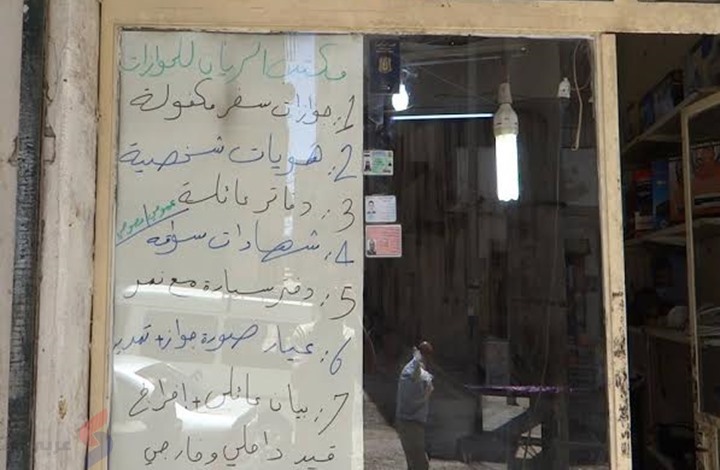 مكتب الريان للجوازات
1: جوازات سفر مكفولة
2: هويات شخصية
3: دفاتر عائلية
4: شهادات سواقة عمومي/خصوصي
5: دفتر سيارة مع نمر
6: عيار صورة جواز +
7: بيان عائلي + اخراج
قيد داخلي وخارجي
عربي